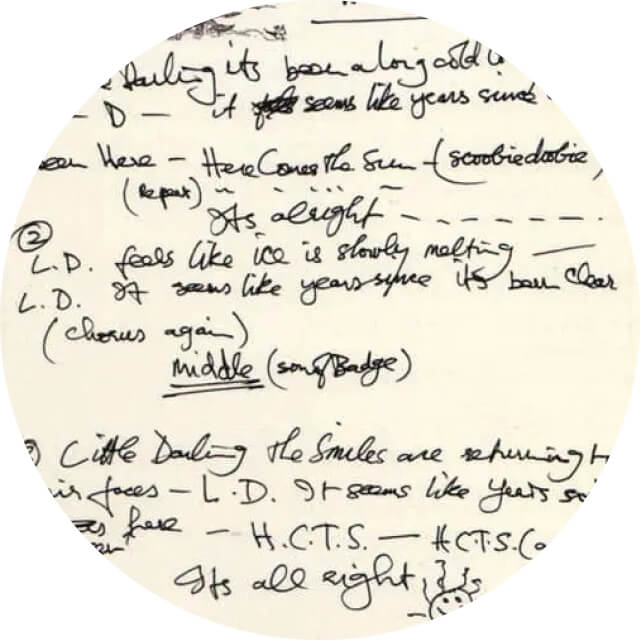 Darling its been a long cold
- D - it seems like years since
een Here - Here Comes the Sun - (scoobiedoobie)
(Repeat)
Its alright - - - - - - -
② L.D. feels like ice is slowly melting —
L.D. It seems like years since its been clear
(chorus again)
middle (son of Badge)
Little Darling the Smiles are returning t
ir faces - L.D. It seems like years
here - H.C.T.S. - H.C.T.S. (
Its all right